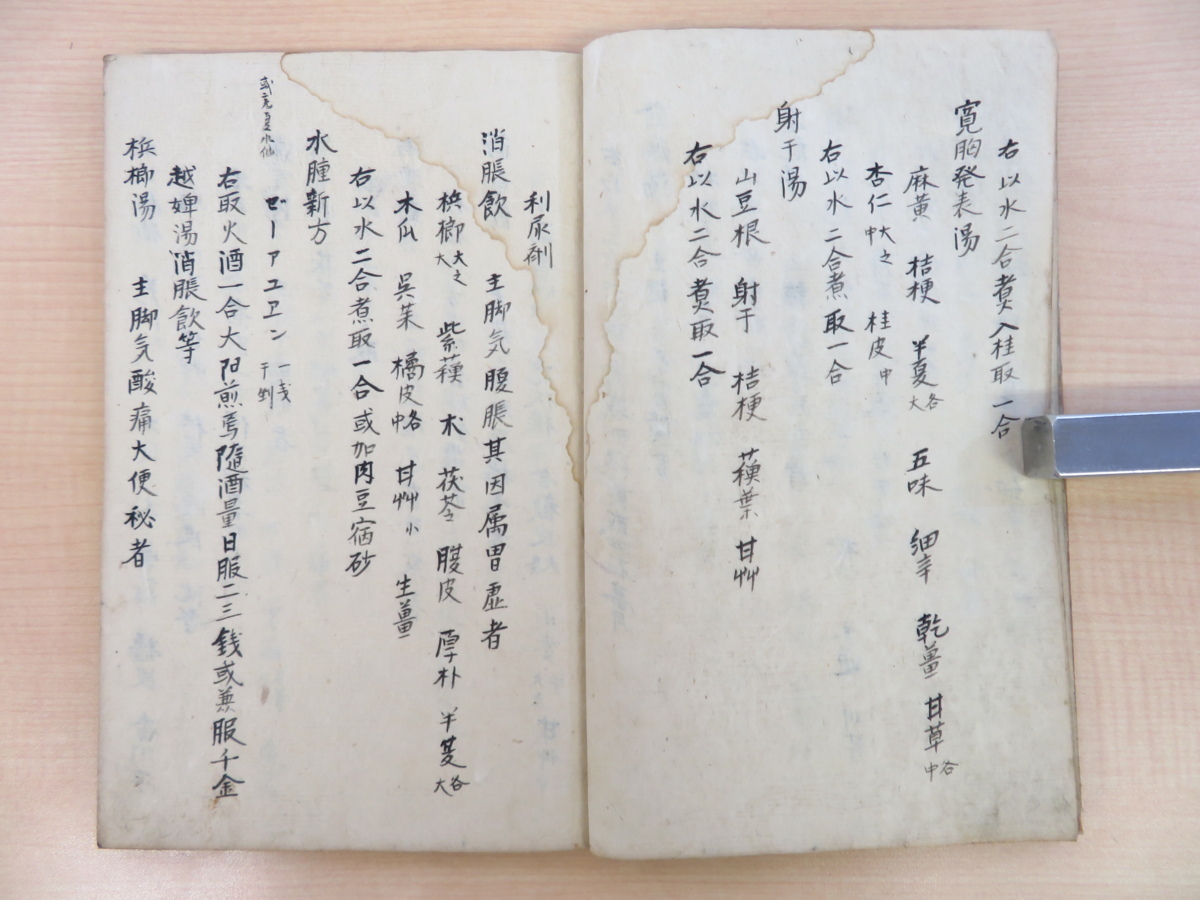 右以水二合煮入桂取一合
寛胸発表湯
麻黄 桔梗 半夏各大 五味 細辛 乾薑 甘草各中
杏仁大之中 桂皮中
右以水二合煮取一合
射干湯
山豆根 射干 桔梗 蘓葉 甘艸
右以水二合煮取一合
利尿剤
消脹飲 主脚気腹脹其因属胃虚者
梹榔大之大 紫蘓 朮 茯苓 腹皮 厚朴 半夏各大
木瓜 呉茱 橘皮各中 甘艸小 生薑
右以水二合煮取一合或加肉豆宿砂
水腫新方
ゼーアユエン 一戔 干剉
右取火酒一合大阳煎焉隨酒量日服二三銭或兼服千金
越婢湯消脹飲等
梹榔湯 主脚気酸痛大便秘者